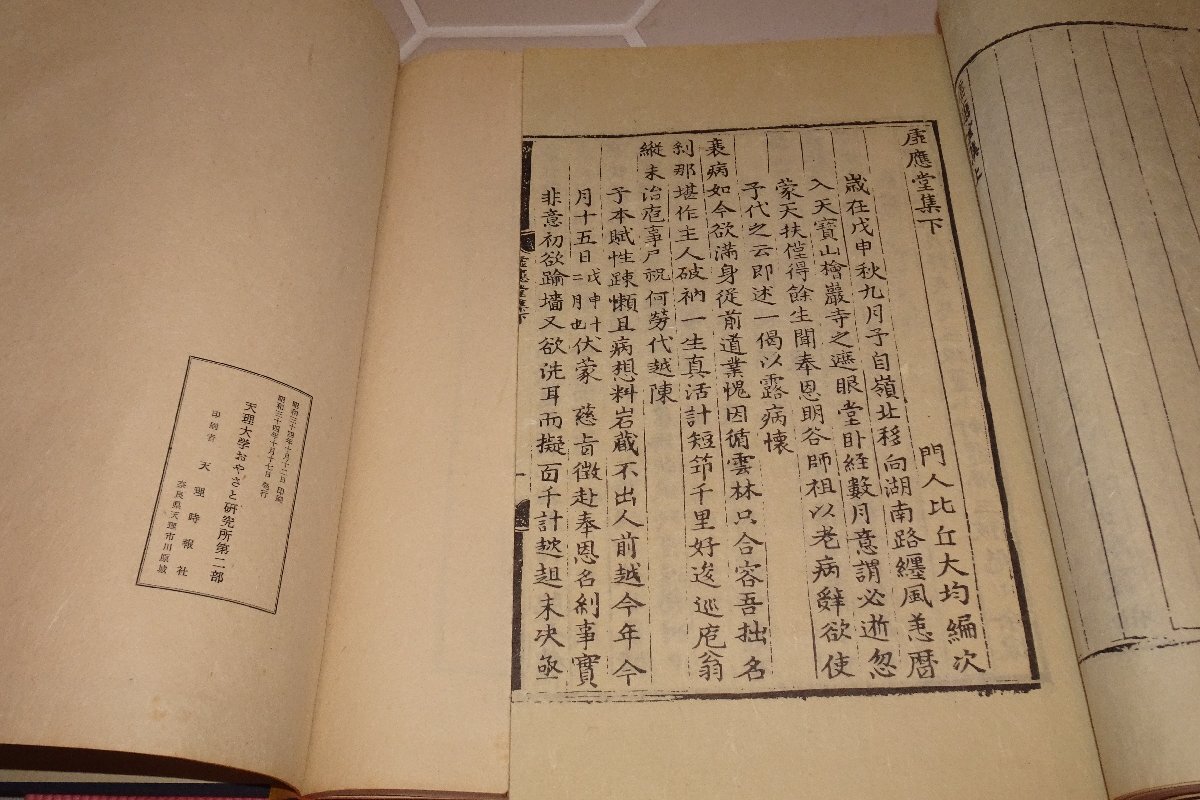 虗應堂集下
門人比丘大均編次
歲在戊申秋九月予自嶺北移向湖南路纏風恙曆
入天寶山檜巖寺之遮眼堂卧経數月意謂必逝忽
蒙天扶僅得餘生聞奉恩明谷師祖以老病辭欲使
予代之云即述一偈以露病懷
衰病如今欲滿身從前道業愧因循雲林只合容吾拙名
刹那堪作主人破衲一生真活計短笻千里好逡巡庖翁
縱未治庖事尸祝何勞代越陳
予本賦性踈懶且病想料岩蔵不出人前越今年今
月十五日戊申十二月也伏蒙 慈旨徵赴奉恩名刹事實
非意初欲踰墻又欲洗耳而擬百千計趑趄未决亟
虛應堂集下
一
昭和三十四年十月十二日 印刷
昭和三十四年十月十七日 発行
天理大学おやさと研究所第二部
印刷者 天理時報社
奈良県天理市川原城